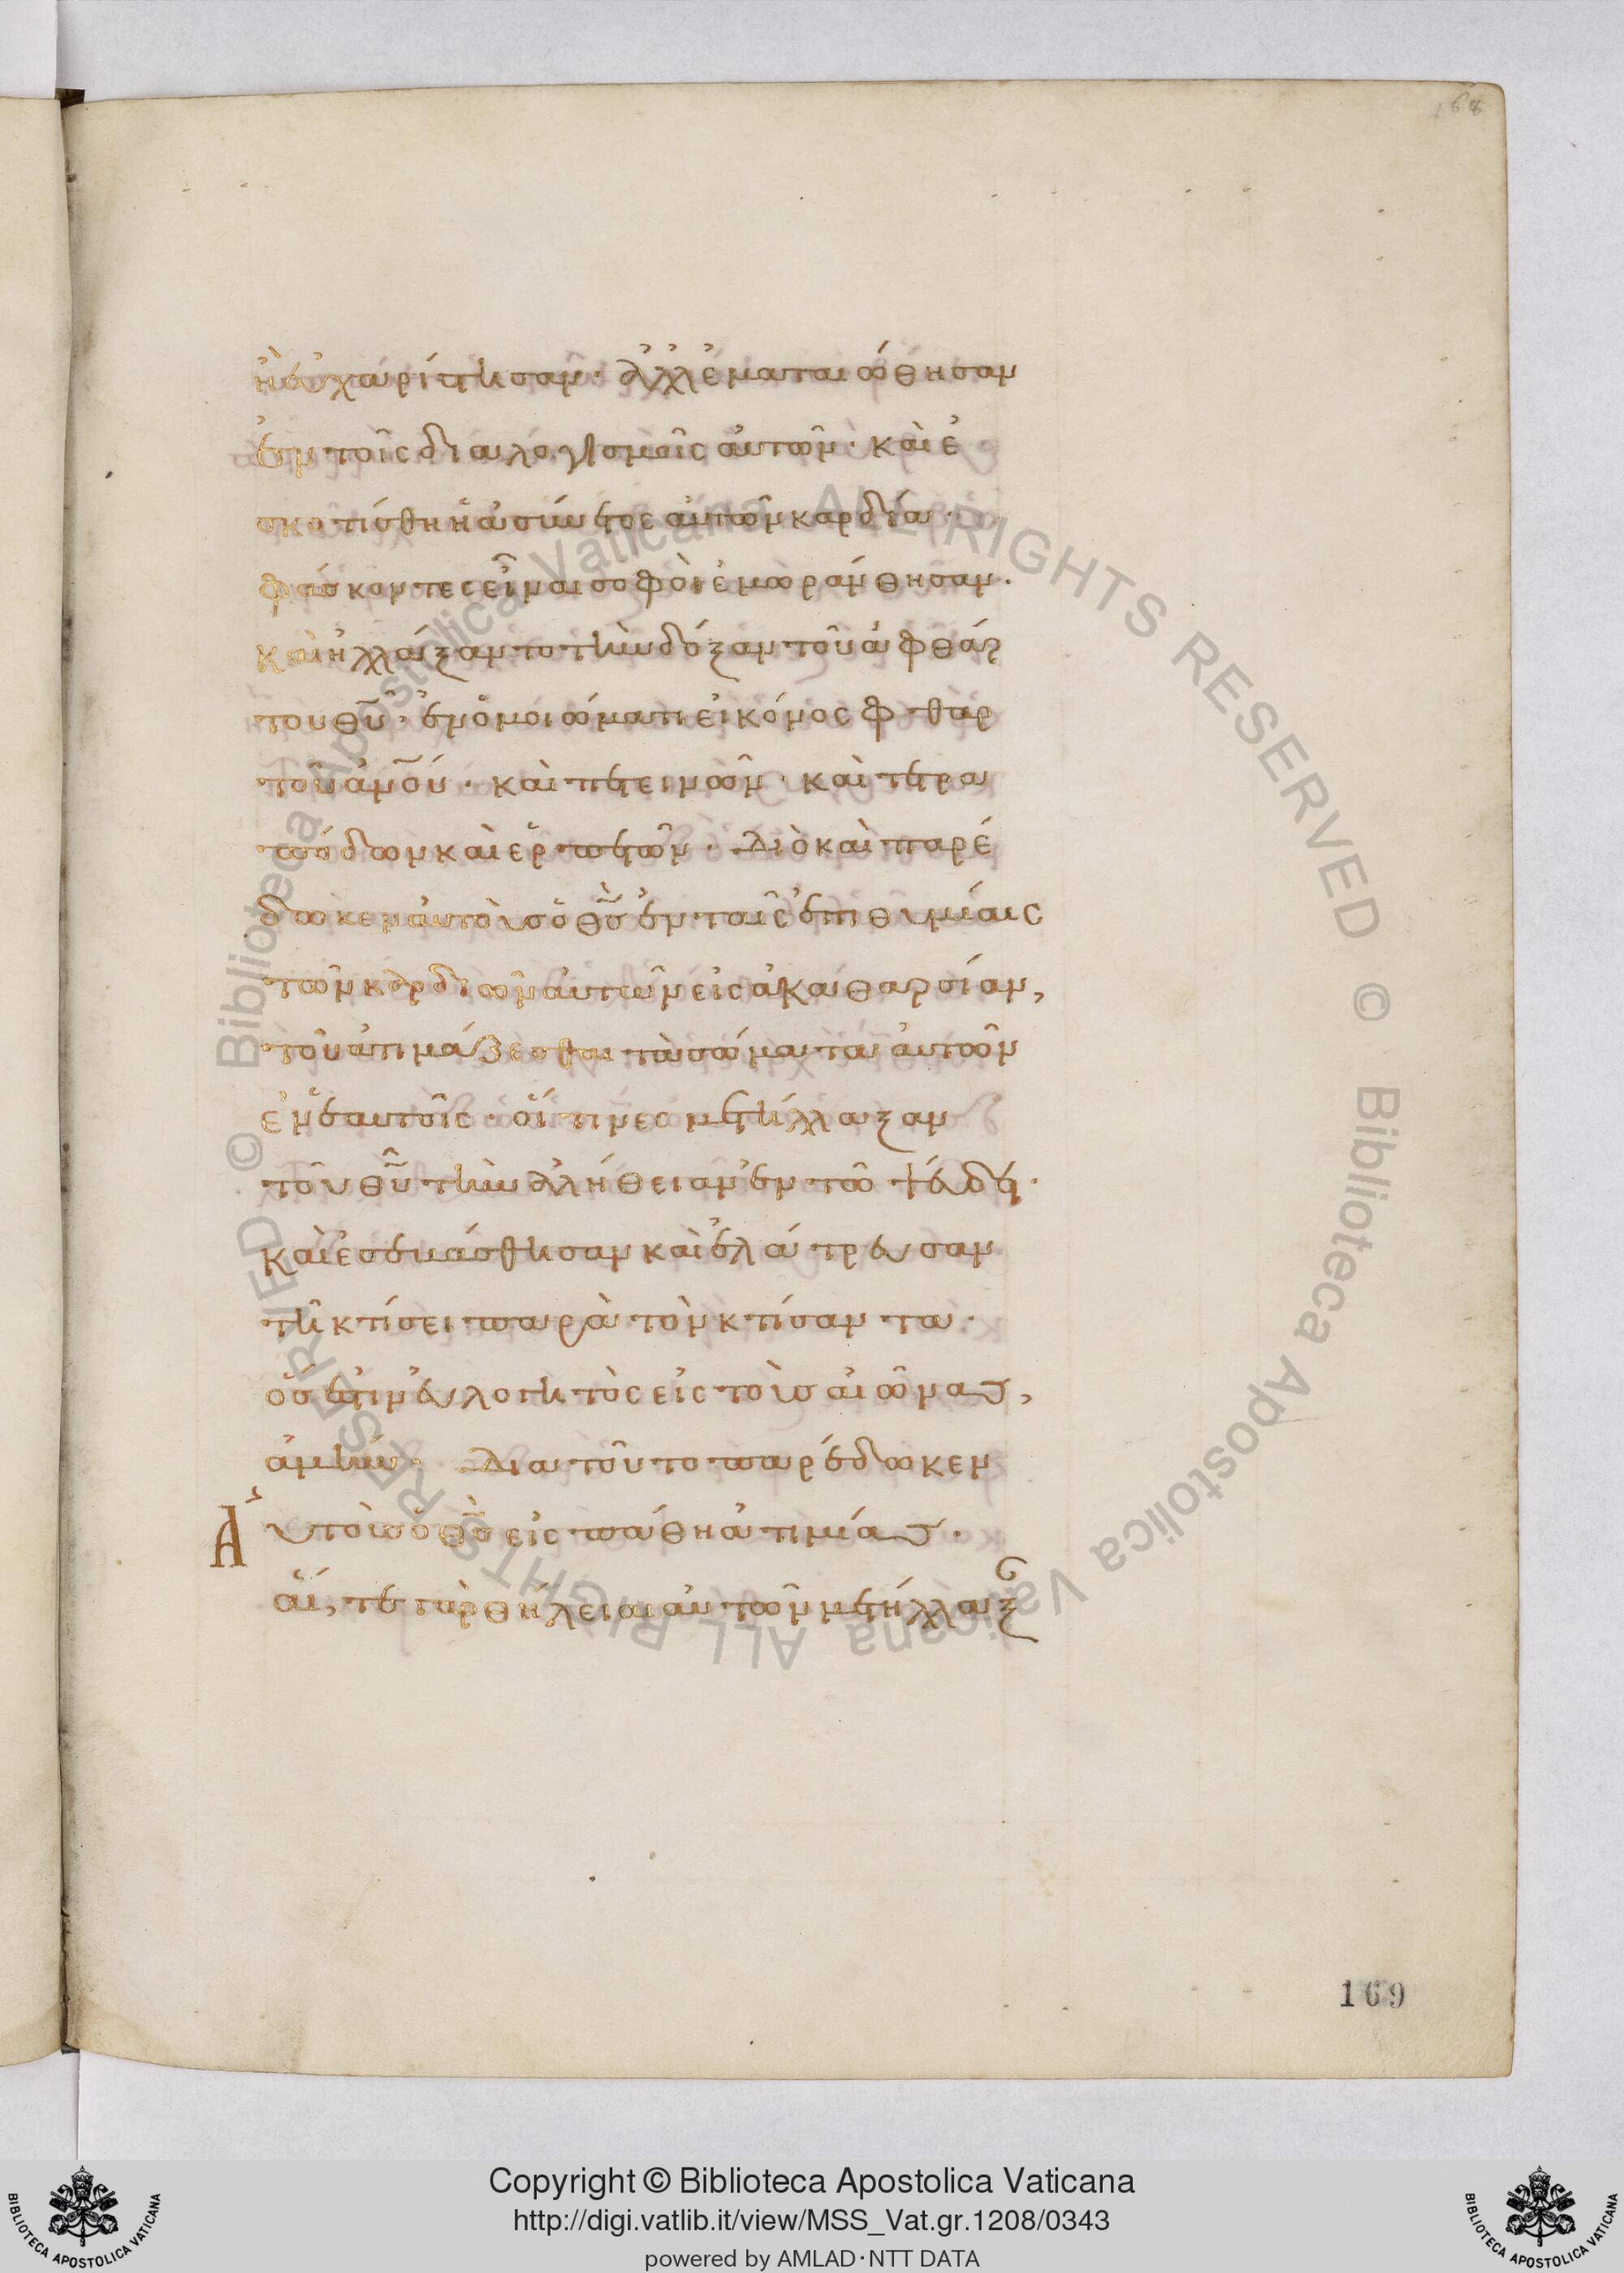 168
ἢ εὐχαρίστησαν· ἀλλ' ἐματαιώθησαν
ἐν τοῖς διαλογισμοῖς αὐτῶν· καὶ ἐ
σκοτίσθη ἡ ἀσύνετος αὐτῶν καρδία·
φάσκοντες εἶναι σοφοὶ ἐμωράνθησαν·
καὶ ἠλλάξαντο τὴν δόξαν τοῦ ἀφθάρ
του θῦ· ἐν ὁμοιώματι εἰκόνος φθαρ
τοῦ ἀνου· καὶ πετεινῶν· καὶ τετρα
πόδων καὶ ἑρπετῶν· Διὸ καὶ παρέ
δωκεν αὐτοὺς ὁ θς ἐν ταῖς ἐπιθυμίαις
τῶν καρδιῶν αὐτῶν εἰς ἀκαθαρσίαν,
τοῦ ἀτιμάζεσθαι τὰ σώματα αὐτῶν
ἐν ἑαυτοῖς· οἵτινες μετήλλαξαν
τοῦ θῦ τὴν ἀλήθειαν ἐν τῶ ψεύδει·
καὶ ἐσεβάσθησαν καὶ ἐλάτρευσαν
τῆ κτίσει παρὰ τὸν κτίσαντα·
ὅς ἐστιν εὐλογητὸς εἰς τοὺς αἰῶνας,
ἀμήν· Δια τοῦτο παρέδωκεν
Αὐτοὺς ὁ θς εἰς πάθη ἀτιμίας·
αἵ, τε γὰρ θήλειαι αὐτῶν μετήλλαξ
169
© Biblioteca Apostolica Vaticana ALL RIGHTS RESERVED © Biblioteca Apostolica Vaticana ALL RIGHTS RESERVED
Copyright © Biblioteca Apostolica Vaticana
http://digi.vatlib.it/view/MSS_Vat.gr.1208/0343
powered by AMLAD·NTT DATA
BIBLIOTECA APOSTOLICA VATICANA
BIBLIOTECA APOSTOLICA VATICANA